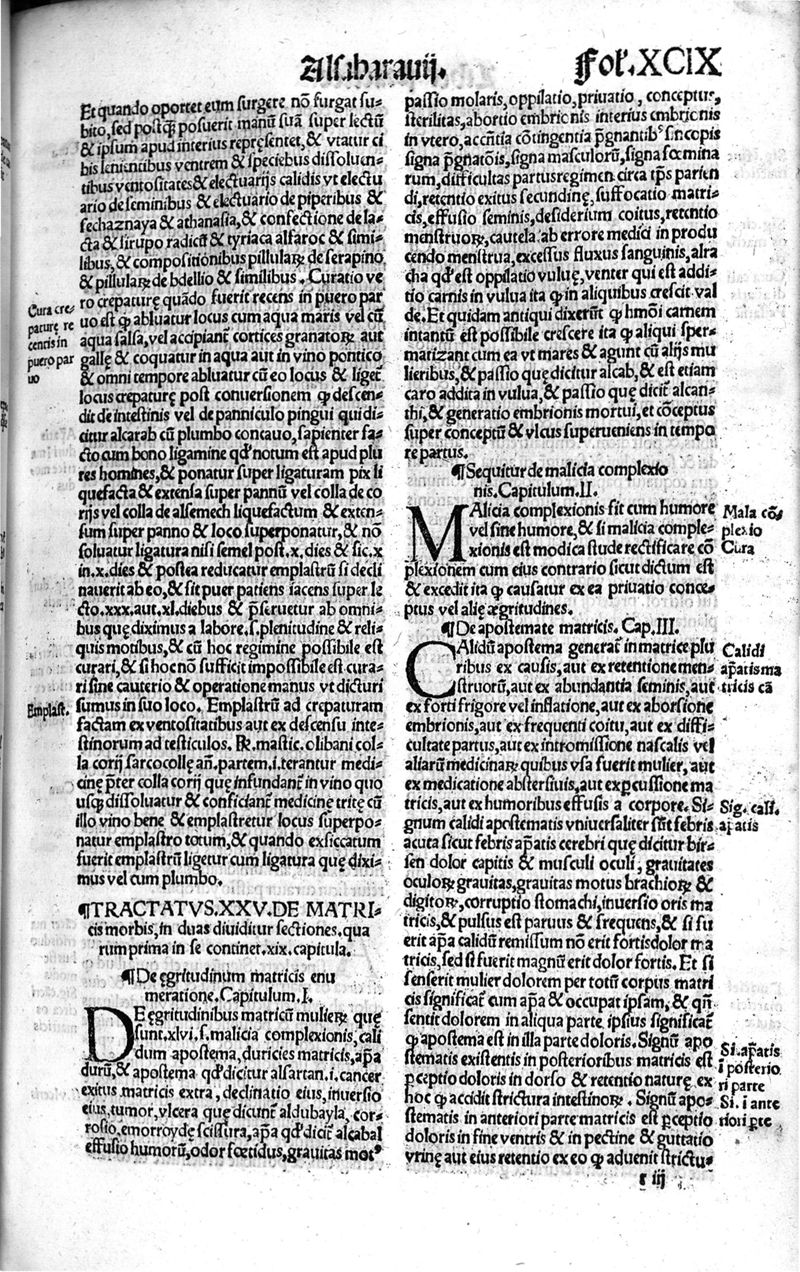 Alsaharauij. Fol. XCIX
Et quando oportet eum surgere nõ surgat su⸗
bito, sed postq̃ posuerit manũ suã super lectũ
& ipsum apud interius repręsentet, & vtatur ci
bis lenientibus ventrem & speciebus dissoluen⸗
tibus ventositates & electuarijs calidis vt electu
ario de seminibus & electuario de piperibus &
sechaznaya & athanasia, & confectione de la⸗
cta & sirupo radicũ & tyriaca alfaroc & simi⸗
libus, & compositionibus pillularꝝ de serapino
& pillularꝝ de bdellio & similibus. Curatio ve
ro crepaturę quãdo fuerit recens in puero par
uo est ꝙ abluatur locus cum aqua maris vel cũ
aqua salsa, vel accipiant̃ cortices granatorꝝ aut
gallę & coquatur in aqua aut in vino pontico
& omni tempore abluatur cũ eo locus & liget̃
locus crepaturę post conuersionem ꝙ descen⸗
dit de intestinis vel de panniculo pingui qui di⸗
citur alcarab cũ plumbo concauo, sapienter fa⸗
cto cum bono ligamine qd̓ notum est apud plu
res homines, & ponatur super ligaturam pix li
quefacta & extensa super pannũ vel colla de co
rijs vel colla de alsemech liquefactum & exten⸗
sum super panno & loco superponatur, & nõ
soluatur ligatura nisi semel post .x. dies & sic .x
in .x. dies & postea reducatur emplastrũ si decli
nauerit ab eo, & sit puer patiens iacens super le
cto .xxx. aut .xl. diebus & p̃seruetur ab omni⸗
bus quę diximus a labore .s. plenitudine & reli⸗
quis motibus, & cũ hoc regimine possibile est
curari, & si hoc nõ sufficit impossibile est cura⸗
ri sine cauterio & operatione manus vt dicturi
sumus in suo loco. Emplastrũ ad crepaturam
factam ex ventositatibus aut ex descensu inte⸗
stinorum ad testiculos. ℞. mastic. olibani col⸗
la corij sarcocollę añ. partem .i. terantur medi⸗
cinę p̃ter colla corij quę infundant̃ in vino quo
usq̃ dissoluatur & conficiant̃ medicinę tritę cũ
illo vino bene & emplastretur locus superpo⸗
natur emplastro totum, & quando exsiccatum
fuerit emplastrũ ligetur cum ligatura quę dixi⸗
mus vel cum plumbo.
¶TRACTATVS.XXV.DE MATRI⸗
cis morbis, in duas diuiditur sectiones. qua
rum prima in se continet .xix. capitula.
¶De ęgritudinum matricis enu
meratione. Capitulum .I.
DE ęgritudinibus matricũ mulierꝝ quę
sunt .xlvi. s. malicia complexionis, cali
dum apostema, duricies matricis, ap̃a
durũ, & apostema qd̓ dicitur alsartan .i. cancer
exitus matricis extra, declinatio eius, inuersio
eius, tumor, vlcera quę dicunt̃ aldubayla, cor⸗
rosio, emorroydę scissura, ap̃a qd̓ dicit̃ alcabal
effusio humorũ, odor fœtidus, grauitas motꝰ
Cura cre⸗
paturę re
centis in
puero par
uo
Emplast.
passio molaris, oppilatio, priuatio, conceptus,
sterilitas, abortio embrionis interius embrionis
in vtero, accñtia cõtingentia p̃gnantibꝰ sincopis
signa p̃gnatõis, signa masculorũ, signa fœmina
rum, difficultas partus regimen circa tp̃s parien
di, retentio exitus secundinę, suffocatio matri⸗
cis, effusio seminis, desiderium coitus, retentio
menstruorꝝ, cautela ab errore medici in produ
cendo menstrua, excessus fluxus sanguinis, alra
cha qd̓ est oppilatio vuluę, venter qui est addi⸗
tio carnis in vulua ita ꝙ in aliquibus crescit val
de. Et quidam antiqui dixerũt ꝙ hmõi carnem
intantũ est possibile crescere ita ꝙ aliqui sper⸗
matizant cum ea vt mares & agunt cũ alijs mu
lieribus, & passio quę dicitur alcab, & est etiam
caro addita in vulua, & passio quę dicit̃ alcan⸗
thi, & generatio embrionis mortui, et cõceptus
super conceptũ & vlcus superueniens in tempo
re partus.
¶Sequitur de malicia complexio
nis. Capitulum .II.
MAlicia complexionis fit cum humore
vel sine humore, & si malicia comple⸗
xionis est modica stude rectificare cõ
plexionem cum eius contrario sicut dictum est
& excedit ita ꝙ causatur ex ea priuatio conce⸗
ptus vel alię ægritudines.
¶De apostemate matricis. Cap.III.
CAlidũ apostema generat̃ in matrice plu
ribus ex causis, aut ex retentione men⸗
struorũ, aut ex abundantia seminis, aut
ex forti frigore vel inflatione, aut ex aborsione
embrionis, aut ex frequenti coitu, aut ex diffi⸗
cultate partus, aut ex intromissione nascalis vel
aliarũ medicinarꝝ quibus vsa fuerit mulier, aut
ex medicatione abstersiuis, aut ex ꝑcussione ma
tricis, aut ex humoribus effusis a corpore. Si⸗
gnum calidi apostematis vniuersaliter sũt febris
acuta sicut febris ap̃atis cerebri quę dicitur bir⸗
sen dolor capitis & musculi oculi, grauitates
oculorꝝ grauitas, grauitas motus brachiorꝝ &
digitorꝝ, corruptio stomachi, inuersio oris ma
tricis, & pulsus est paruus & frequens, & si fu
erit ap̃a calidũ remissum nõ erit fortis dolor ma
tricis, sed si fuerit magnũ erit dolor fortis. Et si
senserit mulier dolorem per totũ corpus matri
cis significat̃ cum ap̃a & occupat ipsam, & qñ
sentit dolorem in aliqua parte ipsius significat̃
ꝙ apostema est in illa parte doloris. Signũ apo
stematis existentis in posterioribus matricis est
ꝑceptio doloris in dorso & retentio naturę ex
hoc ꝙ accidit strictura intestinorꝝ. Signũ apo⸗
stematis in anteriori parte matricis est ꝑceptio
doloris in fine ventris & in pectine & guttatio
vrinę aut eius retentio ex eo ꝙ aduenit strictu⸗
Mala cõ⸗
plexio
Cura
Calidi
ap̃atis ma
tricis cã
Sig. cali.
ap̃atis
Si. ap̃atis
ĩ posterio
ri parte
Si. ĩ ante
riori ꝑte
r iij